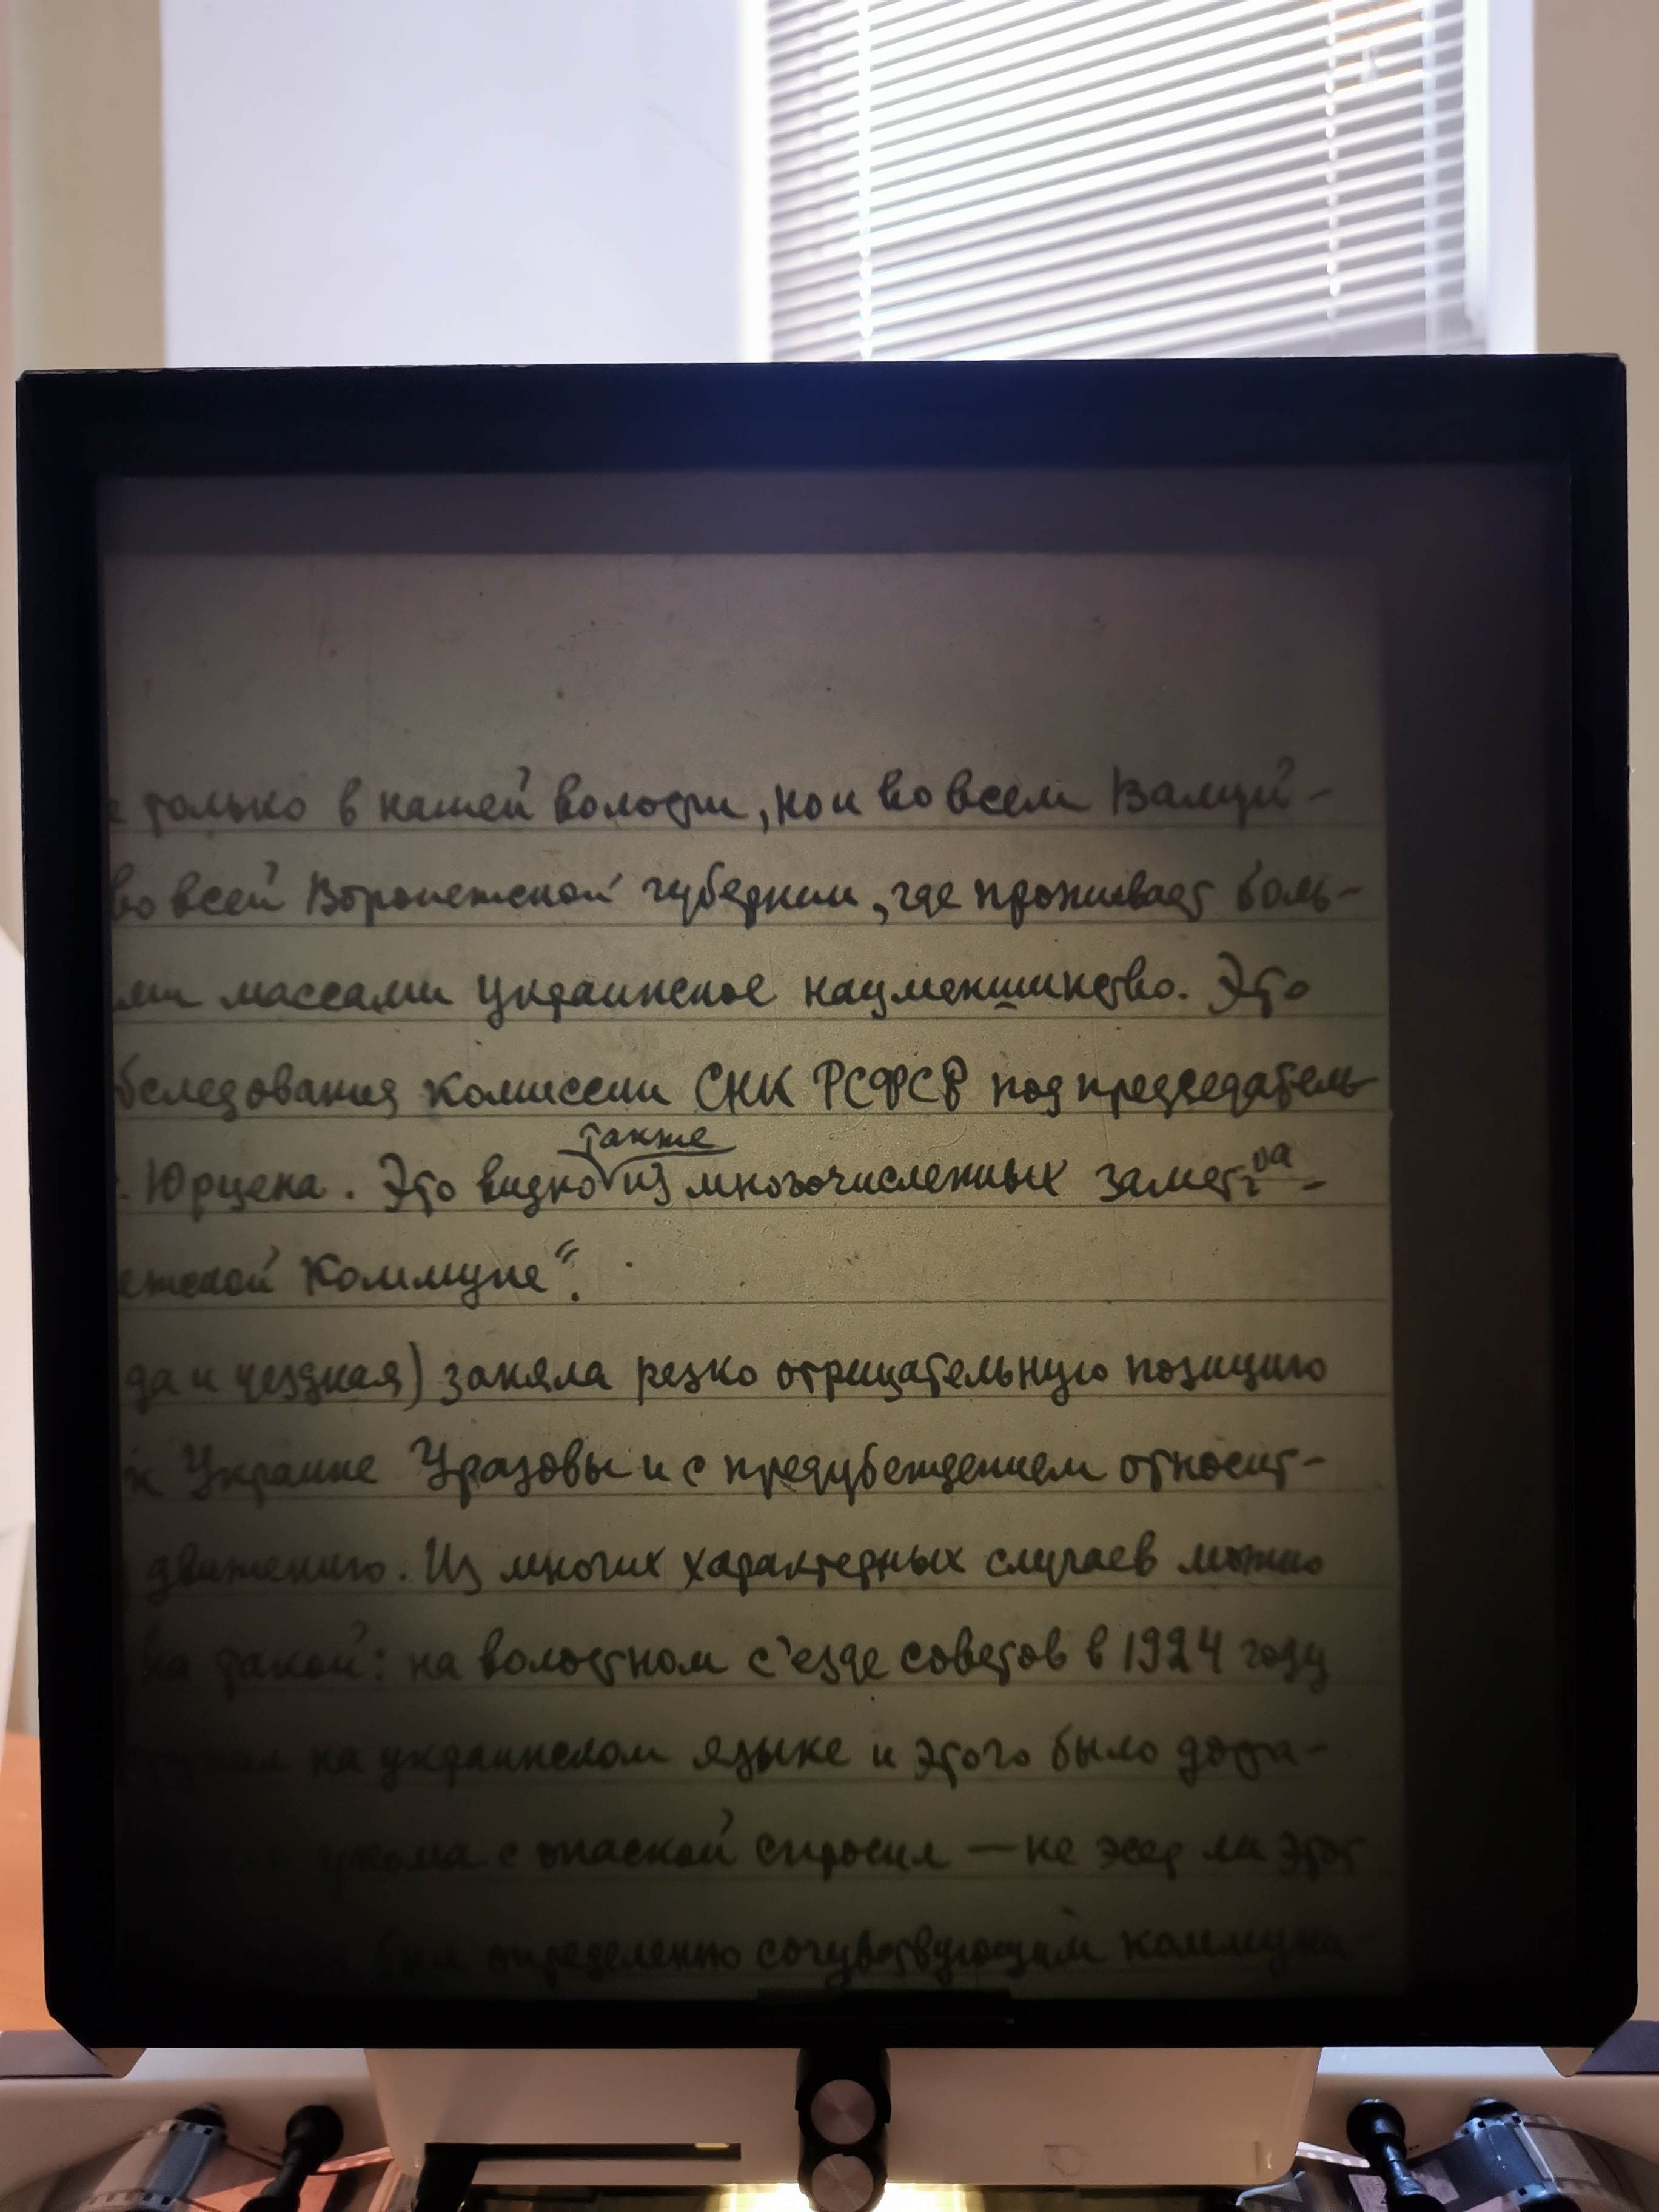 только в нашей волости, но и во всем Валуй-
во всей Воронежской губернии, где проживает боль-
ми массами украинское нацменшинство. Это
бследования комиссии СНК РСФСР под председатель-
также
. Юрцена. Это видно из многочисленных замет
ежской Коммуне".
да и уездная) заняла резко отрицательную позицию
к Украине Уразовы и с предубеждением относит-
движению. Из многих характерных случаев можно
на такой: на волостном с'езде советов в 1924 году
на украинском языке и этого было доста-
укома с опаской спросил — не эсер ли этот
был определенно сочувствующим коммуни-